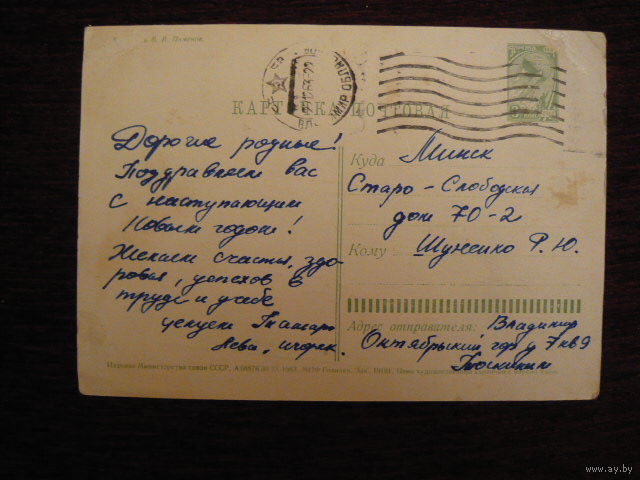 В. И. Пименов.
КАРТОЧКА ПОЧТОВАЯ
Дорогие родные!
Поздравляем вас
с наступающим
Новым годом!
Желаем счастья, здо-
ровья, успехов в
труде и учебе
целуем Тамара
Игорек.
Куда Минск
Старо-Слободская
дом 70-2
Кому
Р. Ю.
Адрес отправителя: Владимир
Октябрьский гор
7 кв 9
Издание Министерства связи СССР.
www.ay.by